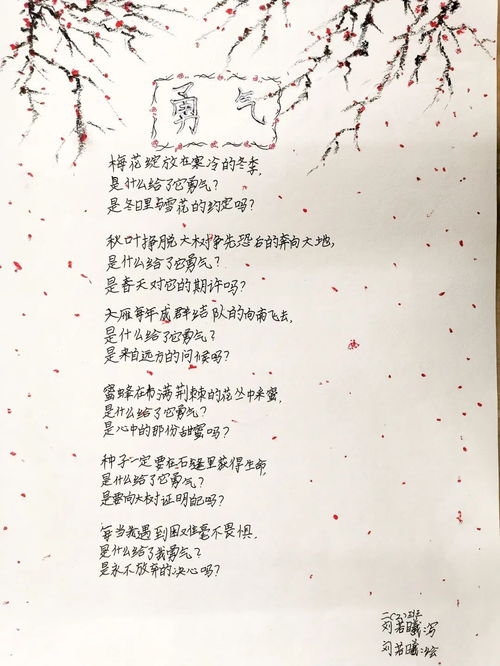 勇气
梅花绽放在寒冷的冬季,
是什么给了它勇气?
是冬日里与雪花的约定吗?
秋叶挣脱大树争先恐后的奔向大地,
是什么给了它勇气?
是春天对它的期许吗?
大雁每年成群结队的向南飞去,
是什么给了它勇气?
是来自远方的问候吗?
蜜蜂在布满荆棘的花丛中来蜜,
是什么给了它勇气?
是心中的那份甜蜜吗?
种子一定要在石缝里获得生命,
是什么给了它勇气?
是要向大树证明自己吗?
每当我遇到困难毫不畏惧,
是什么给了我勇气?
是永不放弃的决心吗?
二(3)班
刘若曦写
刘若曦绘